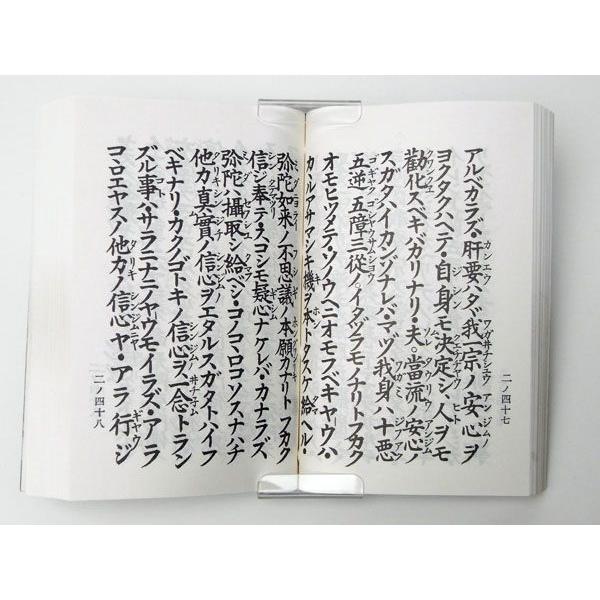 アルベカラズ・肝要ハタヾ我一宗ノ安心ヲ
ヨクタクハヘテ・自身モ決定シ・人ヲモ
勸化スベキバカリナリ・夫。當流ノ安心ノ
スガタハイカンゾナレバ・マヅ我身ハ十悪
五逆五障三從ノ。イタヅラモノナリトフカク
オモヒツメテ・ソノウヘニオモフベキヤウハ・
カヽルアサマシキ機ヲ本トタスケ給ヘル・
弥陀如来ノ不思議ノ本願力ナリトフカク
信ジ奉テ・スコシモ疑心ナケレバ・カナラズ
弥陀ハ攝取シ給ベシ・コノコヽロコソスナハチ
他力真實ノ信心ヲエタルスガタトハイフ
ベキナリ・カクノゴトキノ信心ヲ一念トラン
ズル事ハ・サラニナニノヤウモイラズ・アラ
コヽロエヤスノ他力ノ信心ヤ・アラ行ジ
二ノ四十七
二ノ四十八